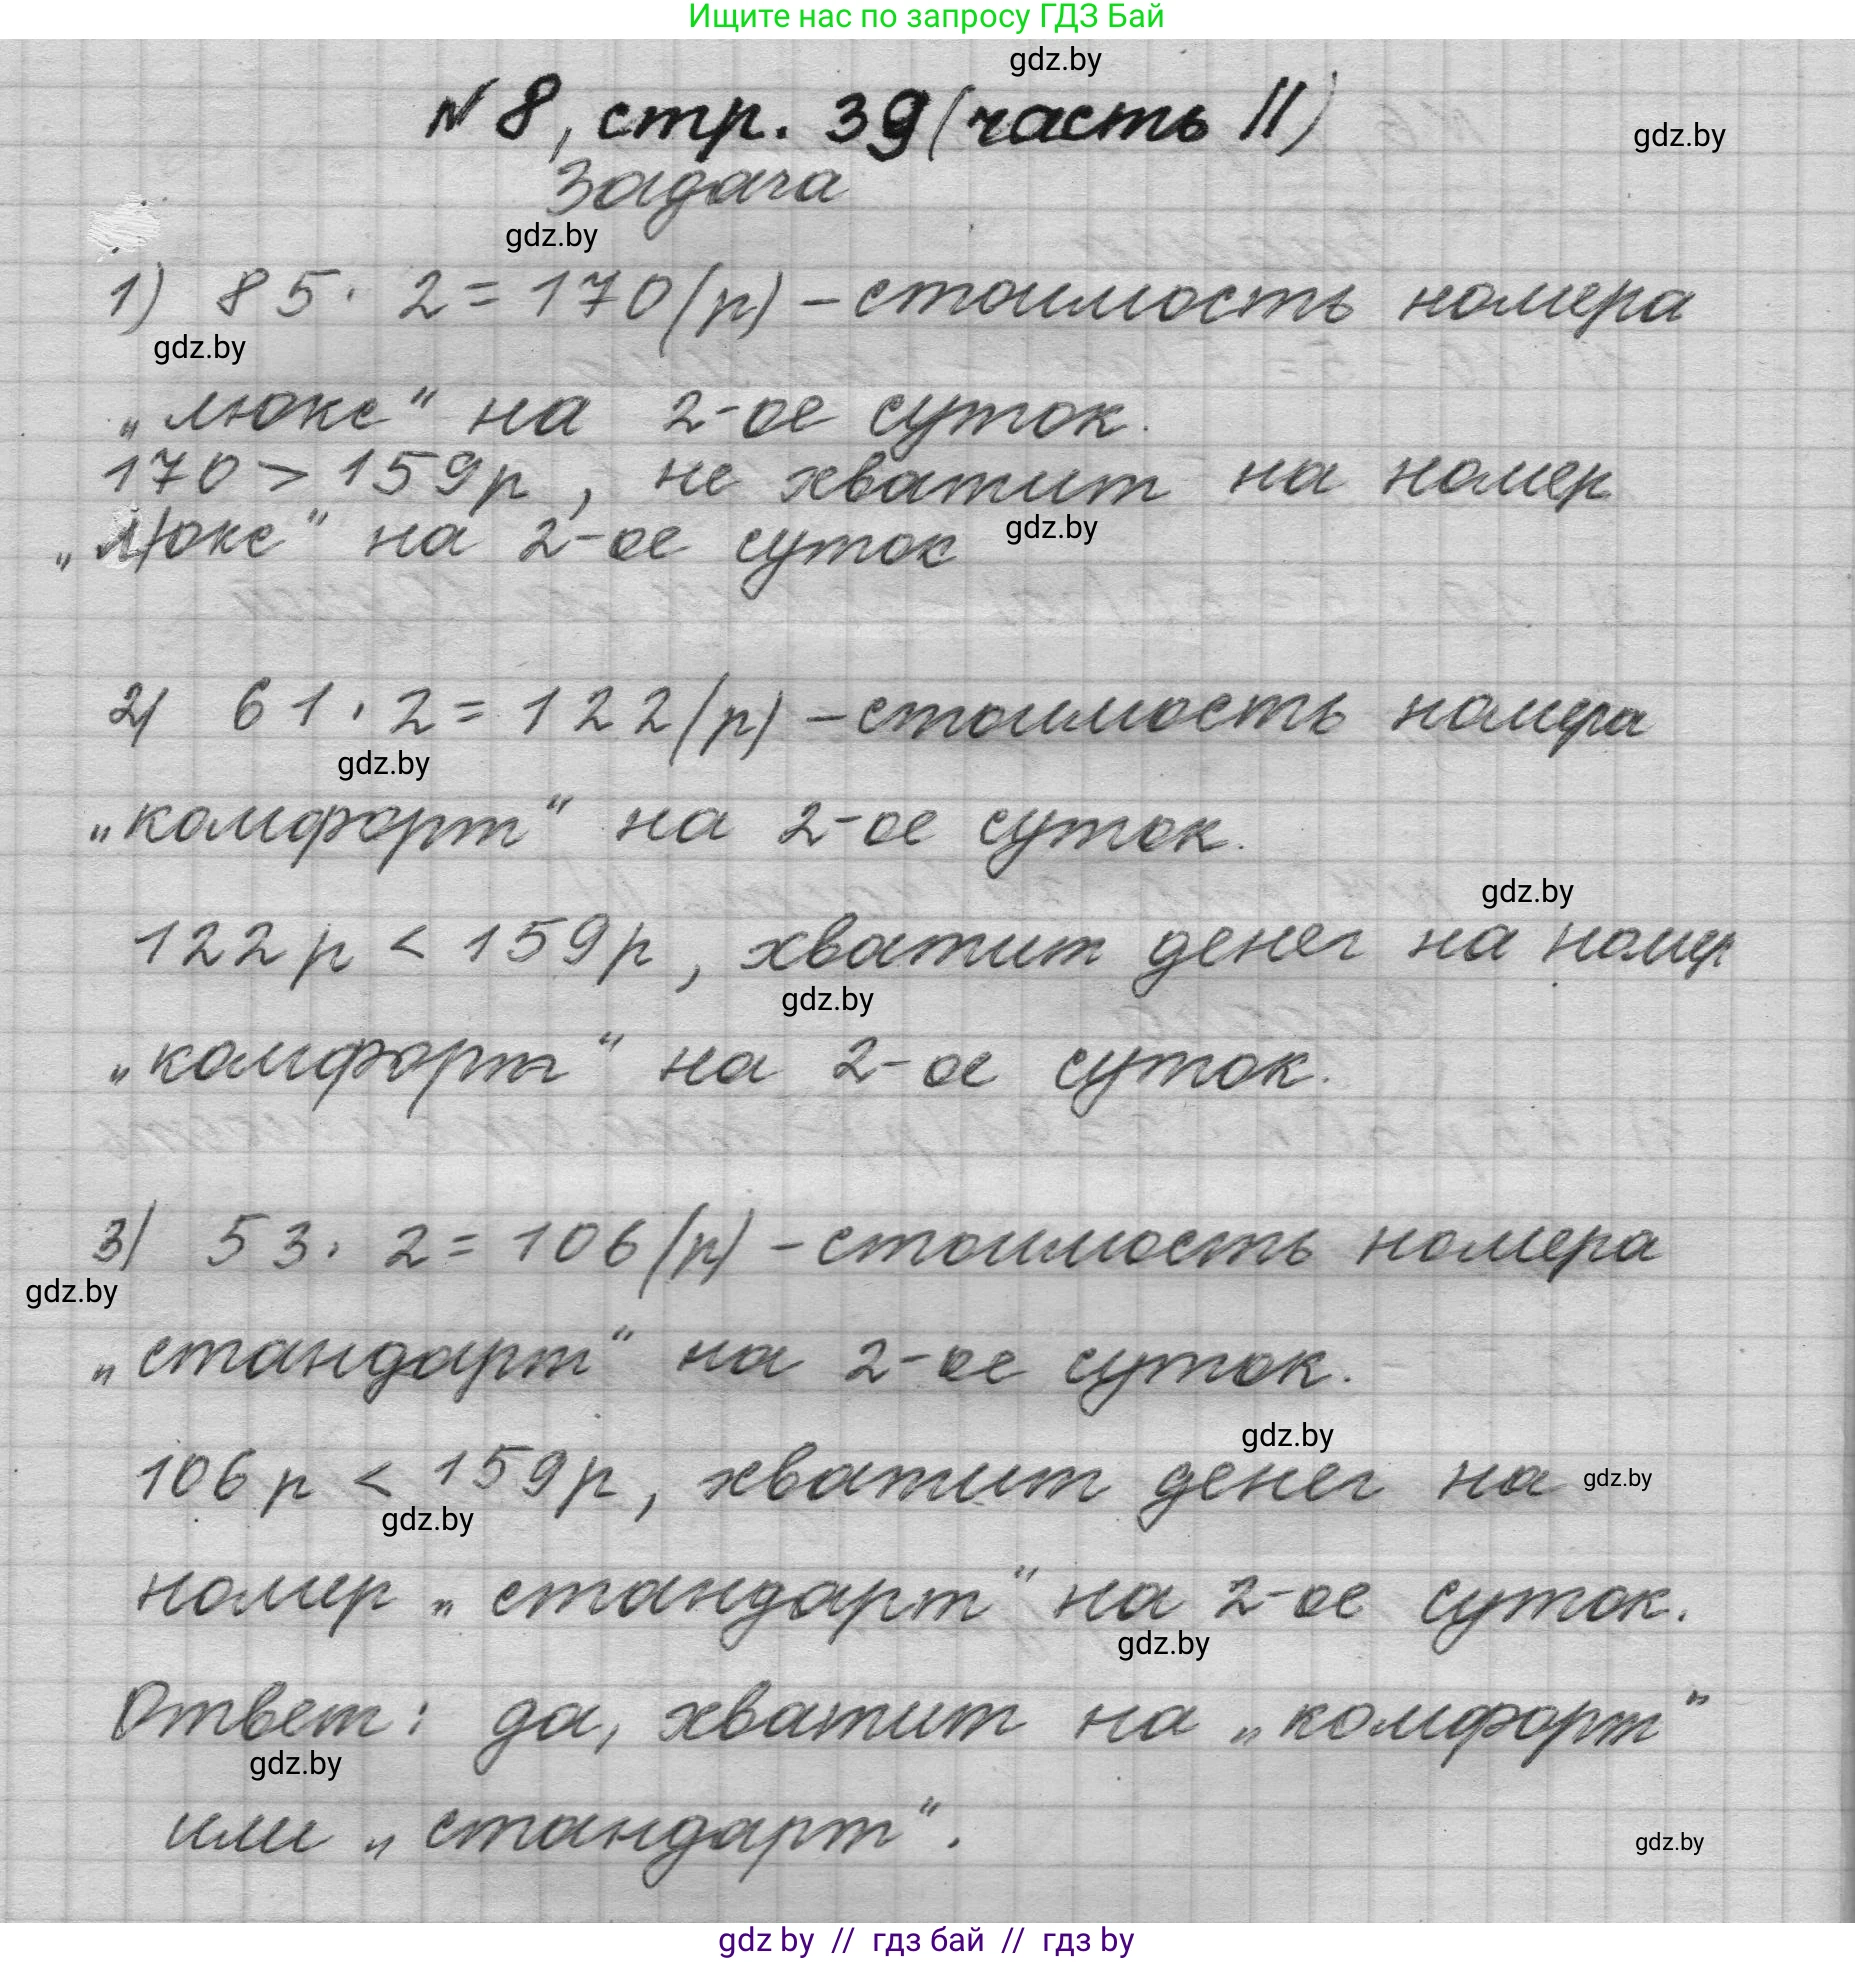 Ищите нас по запросу ГДЗ Бай
gdz.by
№ 8, стр. 39 (часть II)
gdz.by
Задача
gdz.by
1) 85 · 2 = 170 (р) – стоимость номера
gdz.by
„люкс“ на 2-ое суток.
170 > 159р, не хватит на номер
„Люкс“ на 2-ое суток
gdz.by
2) 61 · 2 = 122 (р) – стоимость номера
gdz.by
„комфорт“ на 2-ое суток.
gdz.by
122 р < 159р, хватит денег на номер
gdz.by
„комфорт“ на 2-ое суток.
3) 53 · 2 = 106 (р) – стоимость номера
gdz.by
„стандарт“ на 2-ое суток.
gdz.by
106 р < 159р, хватит денег на
gdz.by
gdz.by
номер „стандарт“ на 2-ое суток.
gdz.by
Ответ: да, хватит на „комфорт“
gdz.by
или „стандарт“.
gdz.by
gdz by // гдз бай // гдз by